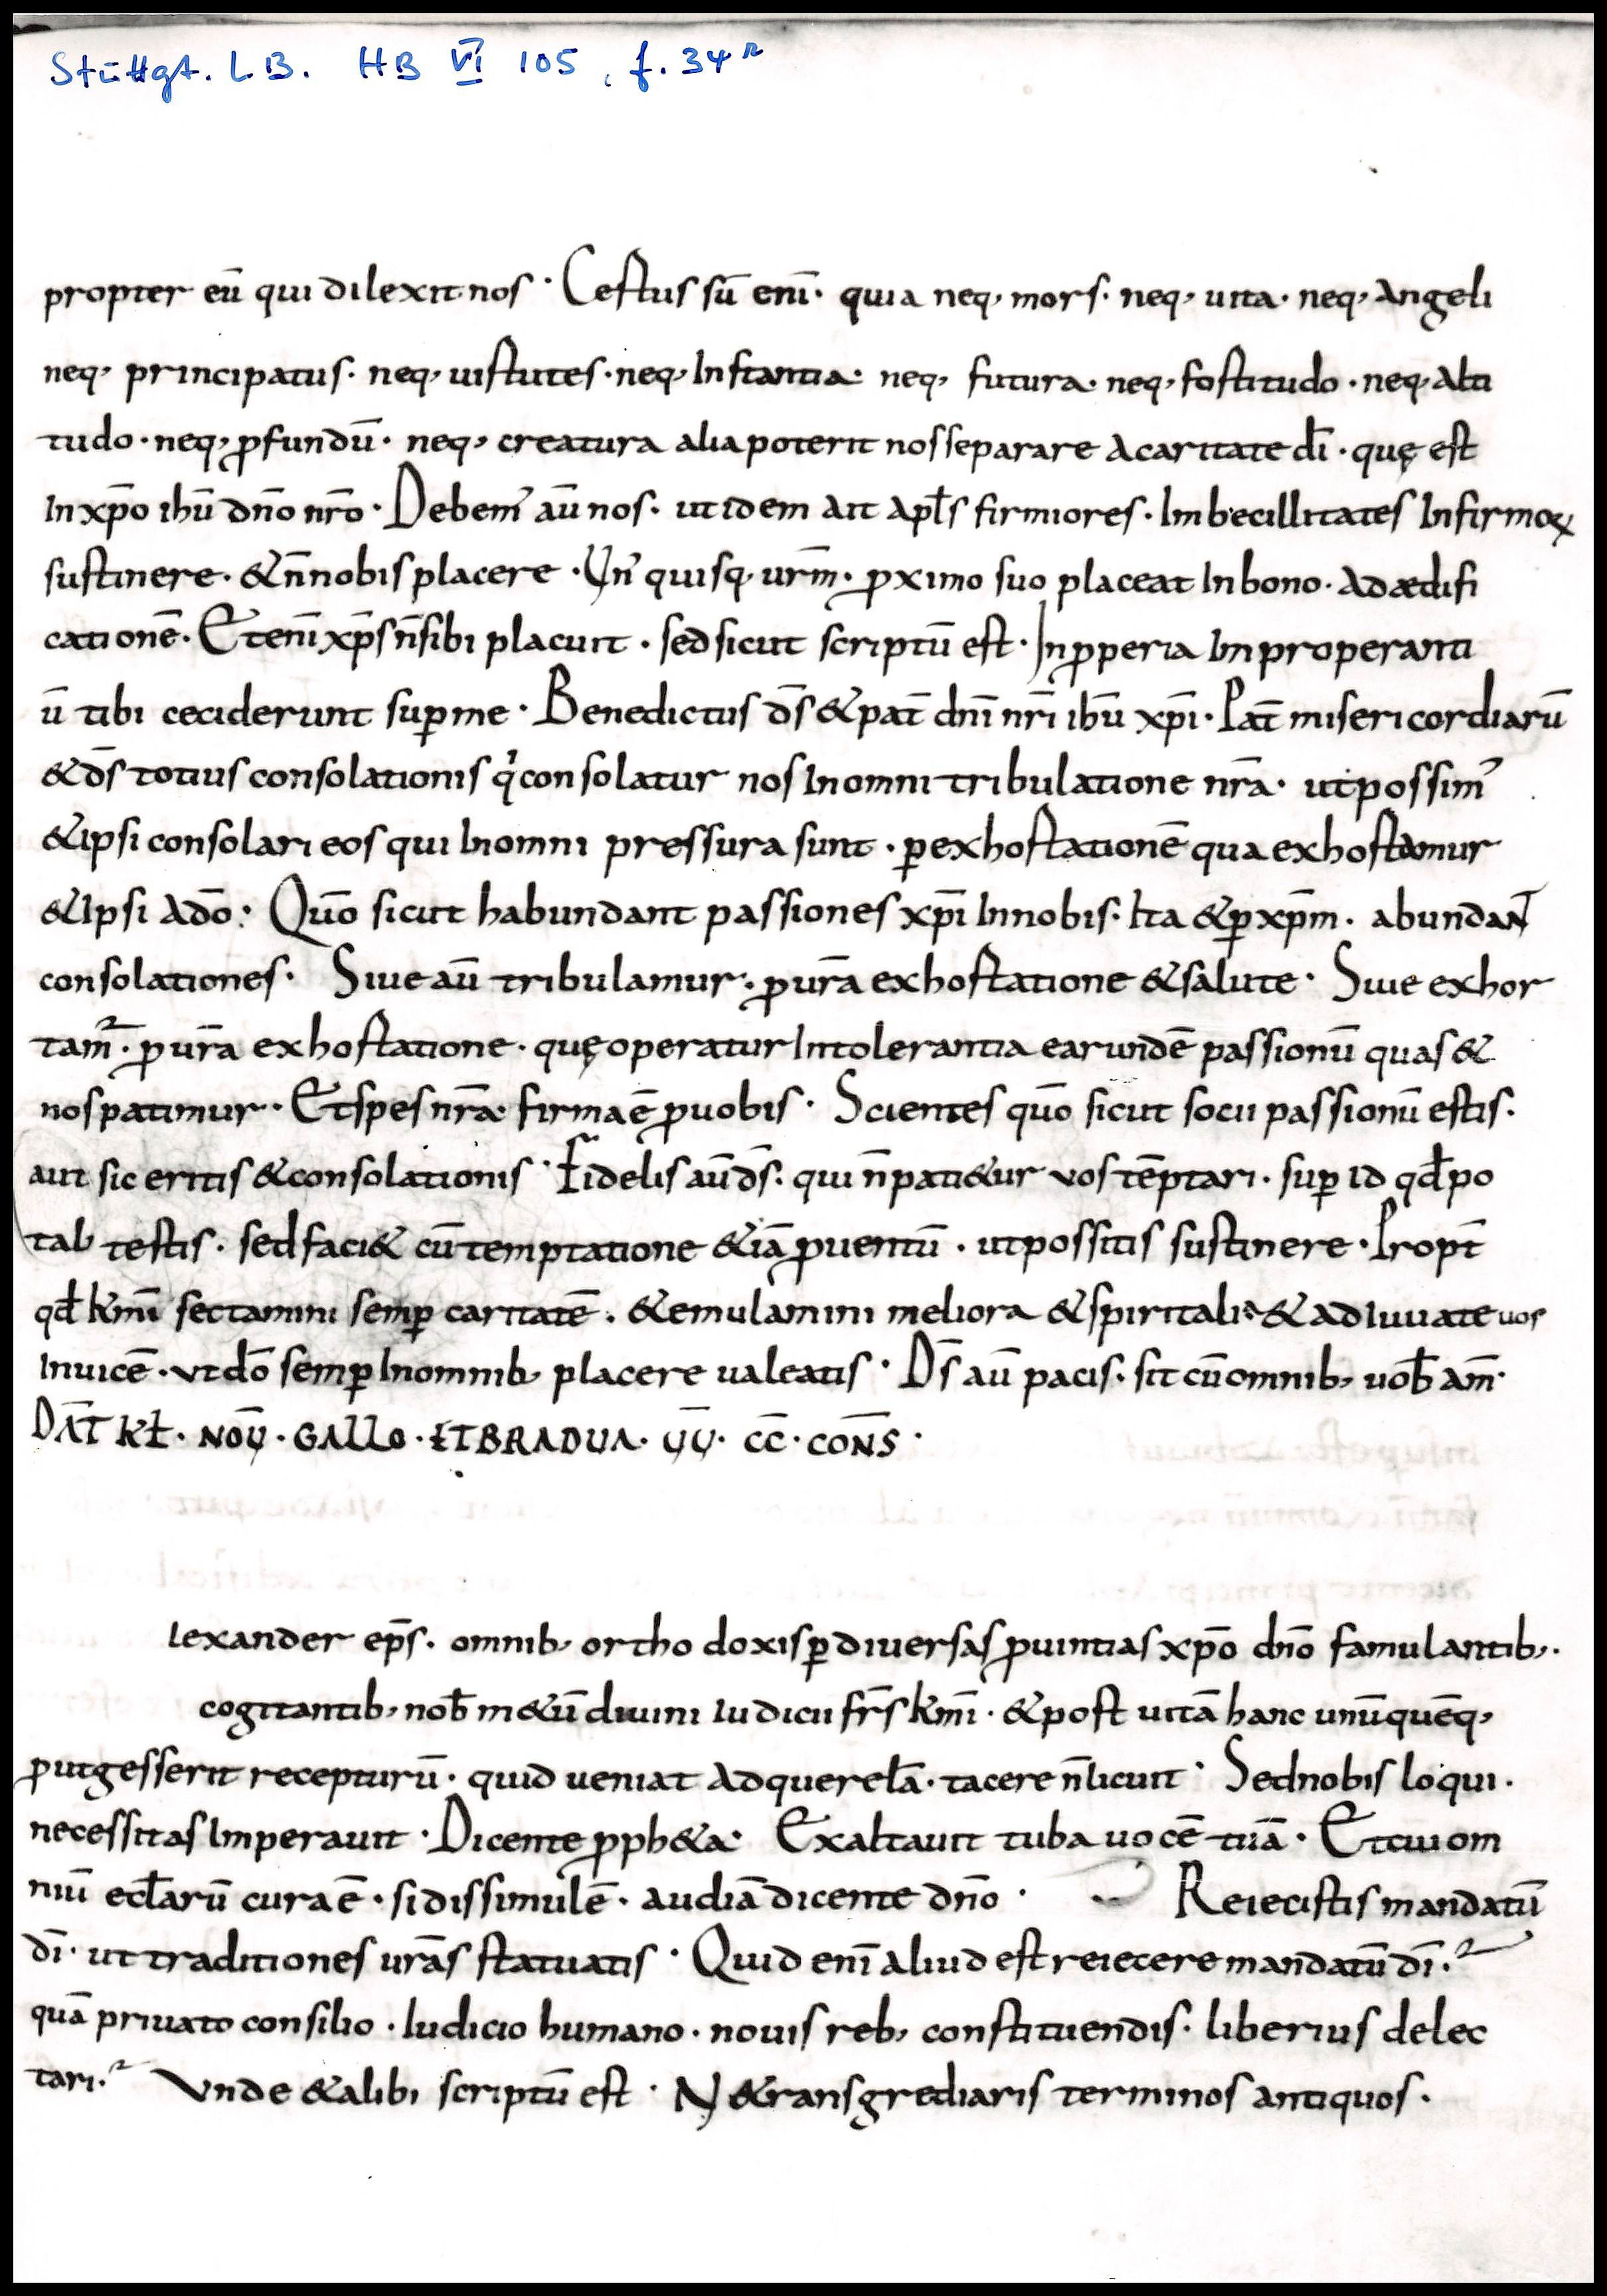 Stuttgt. L.B. HB VI 105, f. 34r
propter eū qui dilexit nos · Certus sū enī · quia neq; mors · neq; uita · neq; Angeli
neq; principatus · neq; uirtutes · neq; Instantia · neq; futura · neq; fortitudo · neq; Alti
tudo · neq; ꝓfundū · neq; creatura alia poterit nos separare A caritate dī · quę est
In xp̄o ihū dn̄o nr̄o · Debem' aū nos · ut idem ait apl̄s firmiores · Imbecillitates Infirmoꝝ
sustinere · & n̄ nobis placere · Vn' quisq; ur̄m · ꝓximo suo placeat In bono · Ad ædifi
cationē · Etenī xp̄s n̄ sibi placuit · sed sicut scriptū est · Inꝓperia Improperanti
ū tibi ceciderunt suꝑ me · Benedictus d̄s & pat̄ dn̄i nr̄i ihū xp̄i · Pat̄ misericordiarū
& d̄s totius consolationis qͥ consolatur nos In omni tribulatione nr̄a · ut possim'
& ipsi consolari eos qui In omni pressura sunt · ꝑ exhortationē qua exhortamur
& Ipsi A dō : Quō sicut habundant passiones xp̄i In nobis · Ita & ꝑ xp̄m · abundaNT
consolationes · Siue aū tribulamur · ꝓ ur̄a exhortatione & salute · Siue exhor
tam̄² · ꝓ ur̄a exhortatione · quę operatur In tolerantia earundē passionū quas &
nos patimur · Et spes nr̄a firma ē ꝓ uobis · Scientes quō sicut socii passionū estis ·
aut sic eritis & consolationis · Fidelis aū d̄s · qui n̄ pati&ur vos tēptari · suꝑ Id qđ po
tab testis · sed faci& cū temptatione &iā ꝓuentū · ut possitis sustinere · Propt̄
qđ kmī sectamini semꝑ caritatē · & emulamini meliora & spiritalia & adiuuate uos
Inuicē · vt dō semꝑ In omnib; placere ualeatis · D̄s aū pacis · sit cū omnib; uob̄ am̄ ·
DĀT KŁ · NOV̄ · GALLO · ET BRADUA · V̄V̄ · C̄C̄ · CON̄S ·
lexander ep̄s · omnib; orthodoxis ꝑ diuersas ꝓuintias xp̄o dn̄o famulantib; ·
cogitantib; nob̄ m&ū diuini Iudicii fr̄s kmī · & post uitā hanc unūquēq;
ꝓut gesserit recepturū · quid ueniat Ad querelā · tacere n̄ licuit · Sed nobis loqui ·
necessitas Imperauit · Dicente ꝓph&a · Exaltauit tuba uocē tuā · Et cui om
niū ecl̄arū cura ē · si dissimulē · audiā dicente dn̄o · Reiecistis mandatū
dī · ut traditiones ur̄as statuatis · Quid enī aliud est reiecere mandatū dī ·
quā priuato consilio · Iudicio humano · nouis reb; constituendis · liberius delec
tari · Vnde & alibi scriptū est · N& transgrediaris terminos antiquos ·